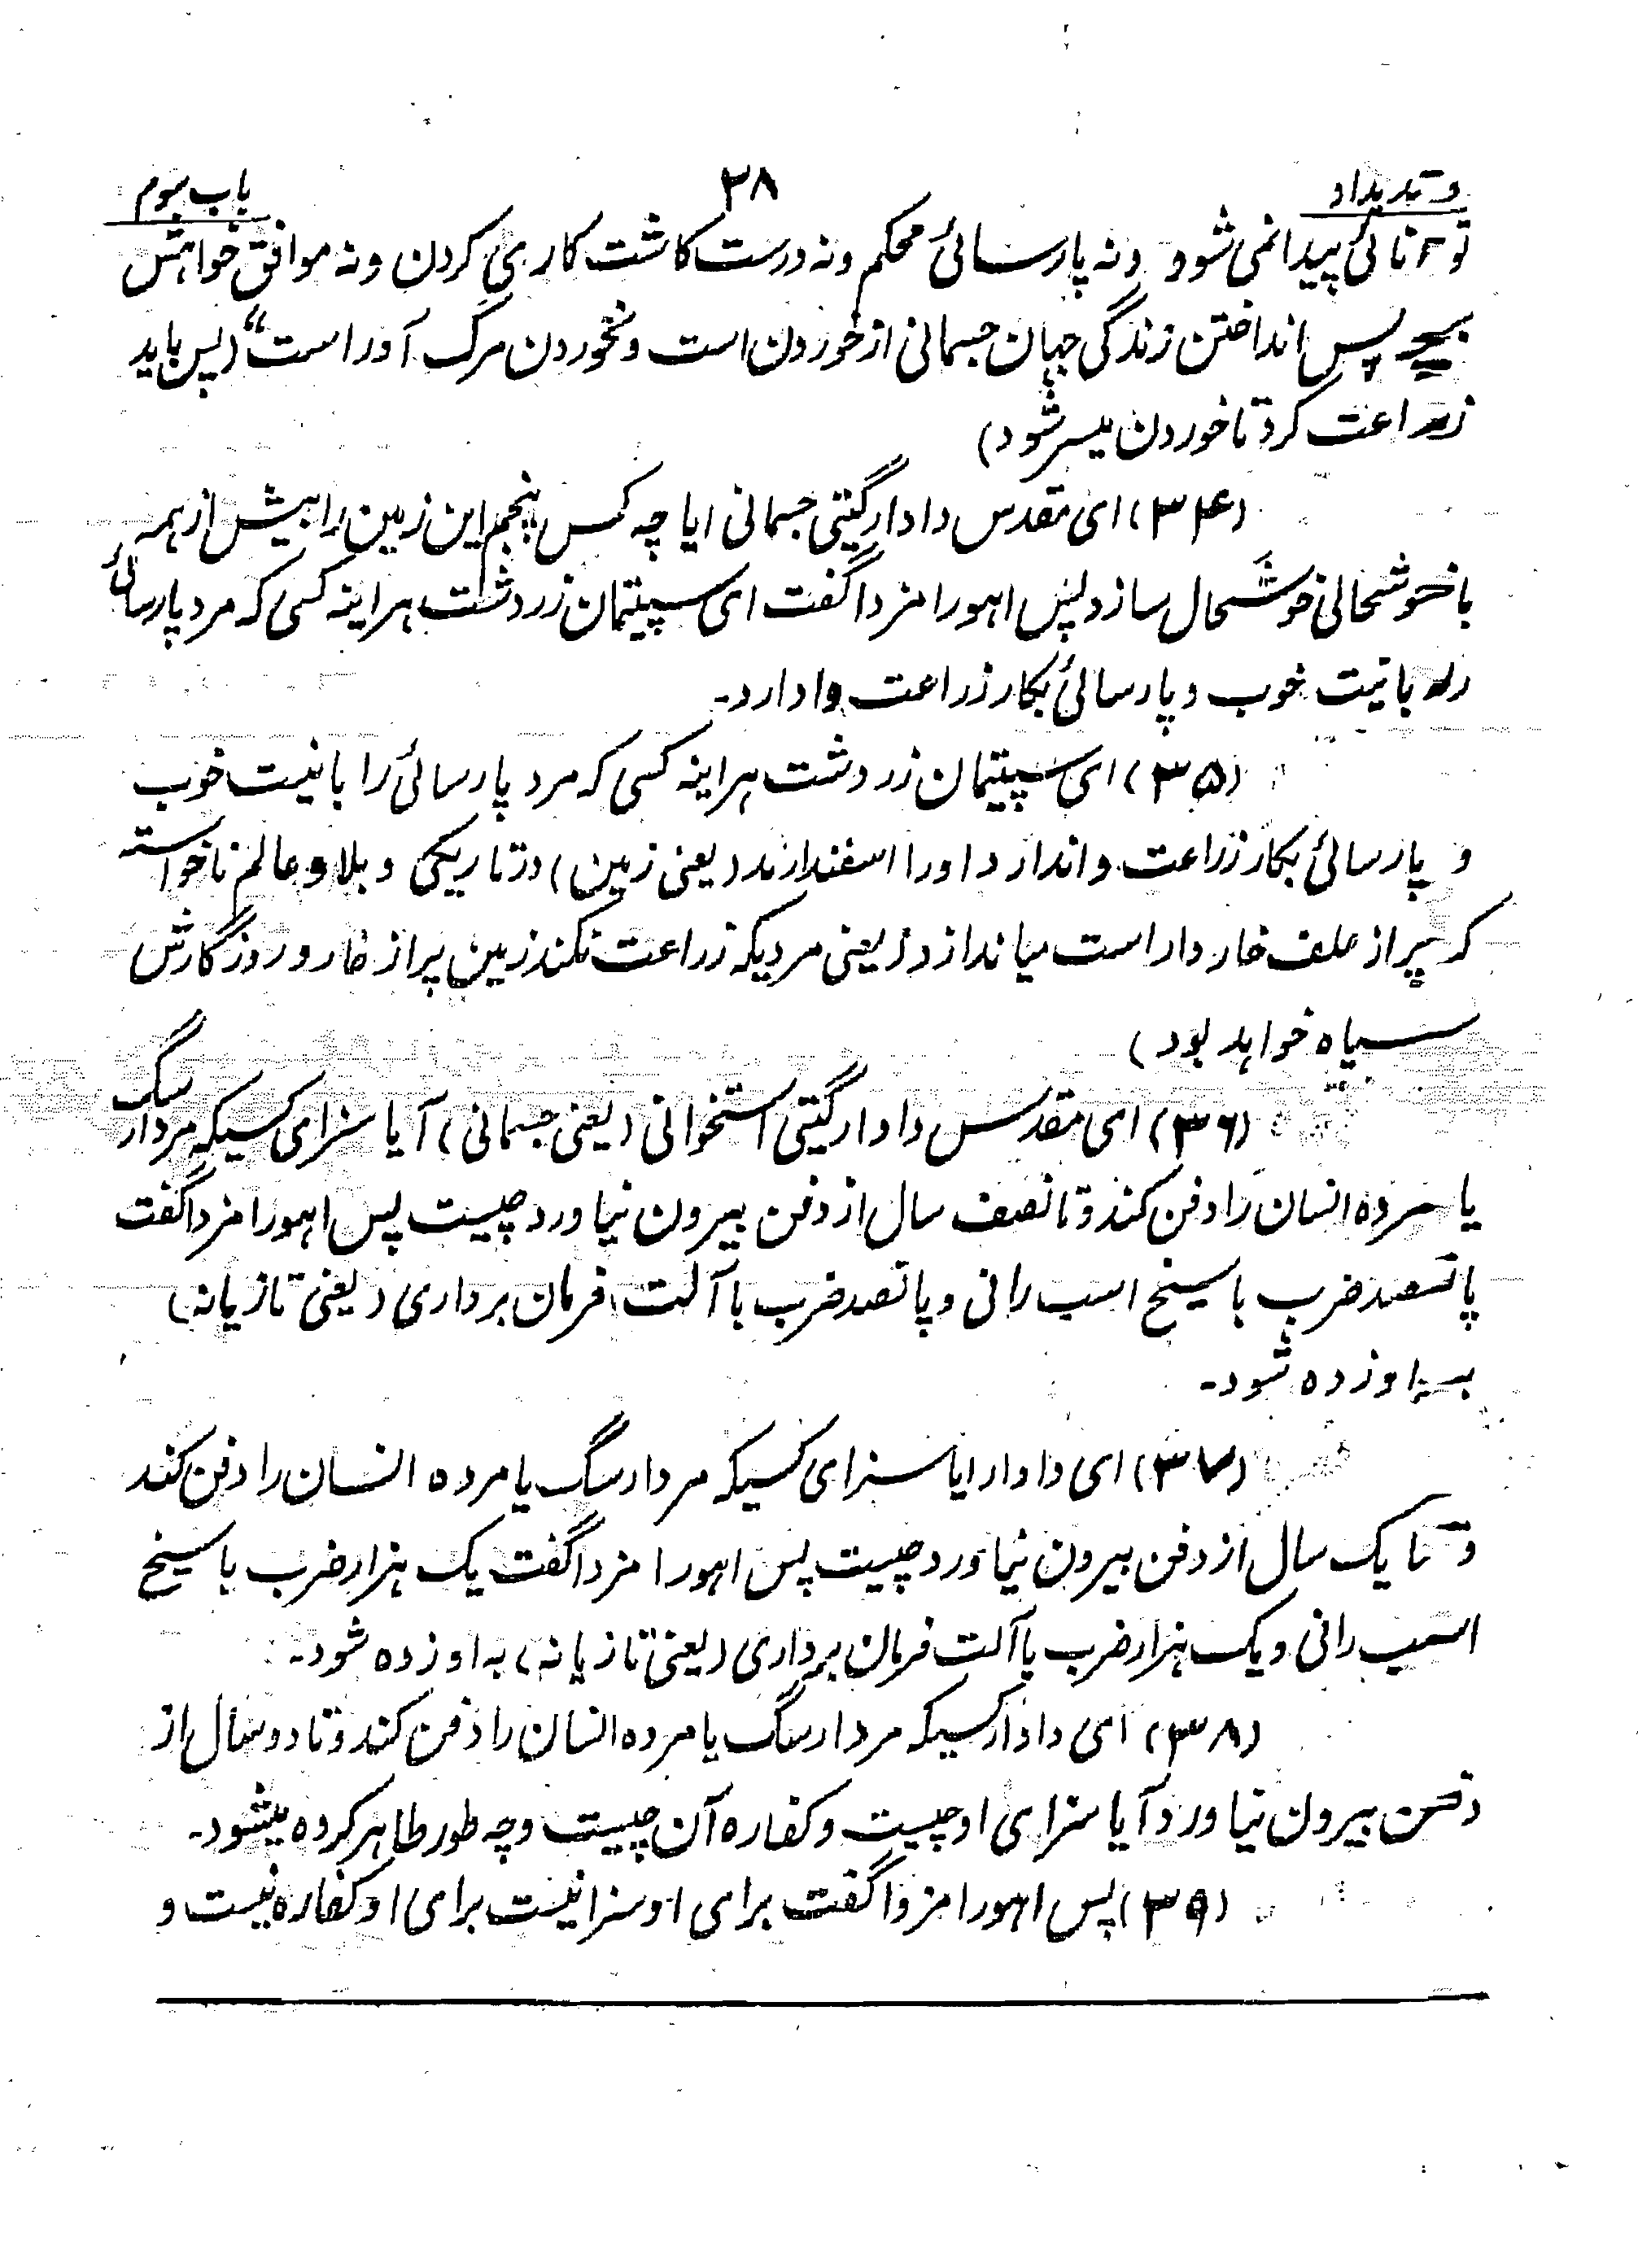 وندیداد ۳۸ باب سوم
توانائی پیدا نمی شود و نه پارسائی محکم و نه درست کاشت کاری کردن و نه موافق خواهش
بچه پس انداختن زندگی جهان جسمانی از خوردن است و نخوردن مرگ آور است“ (پس باید
زراعت کرد تا خوردن میسر شود)
(۳۴) ای مقدس دادار گیتی جسمانی ایا چه کس پنجم این زمین را بیش از همه
با خوشحالی خوشحال سازد پس اهورا مزدا گفت ای سپیتمان زردشت هراینه کسی که مرد پارسائی
را با نیت خوب و پارسائی بکار زراعت وا دارد۔
(۳۵) ای سپیتمان زردشت هراینه کسی که مرد پارسائی را با نیت خوب
و پارسائی بکار زراعت واندارد اورا اسفندارمد (یعنی زمین) در تاریکی و بلا و عالم ناخواسته
که پر از علف خاردار است میاندازد (یعنی مردیکه زراعت نکند زمین پر از خار و روزگارش
سیاه خواهد بود)
(۳۶) ای مقدس دادار گیتی استخوانی (یعنی جسمانی) آیا سزای کسیکه مردار سگ
یا مرده انسان را دفن کند و تا نصف سال از دفن بیرون نیاورد چیست پس اهورا مزدا گفت
پانصد ضرب با سیخ اسب رانی و پانصد ضرب با آلت فرمان برداری (یعنی تازیانه)
به او زده شود۔
(۳۷) ای دادار ایا سزای کسیکه مردار سگ یا مرده انسان را دفن کند
و تا یک سال از دفن بیرون نیاورد چیست پس اهورا مزدا گفت یک هزار ضرب با سیخ
اسب رانی و یک هزار ضرب با آلت فرمان برداری (یعنی تازیانه) به او زده شود۔
(۳۸) ای دادار کسیکه مردار سگ یا مرده انسان را دفن کند و تا دو سال از
دفن بیرون نیاورد آیا سزای او چیست و کفاره آن چیست و چه طور طاهر کرده میشود۔
(۳۹) پس اهورا مزدا گفت برای او سزا نیست برای او کفاره نیست و